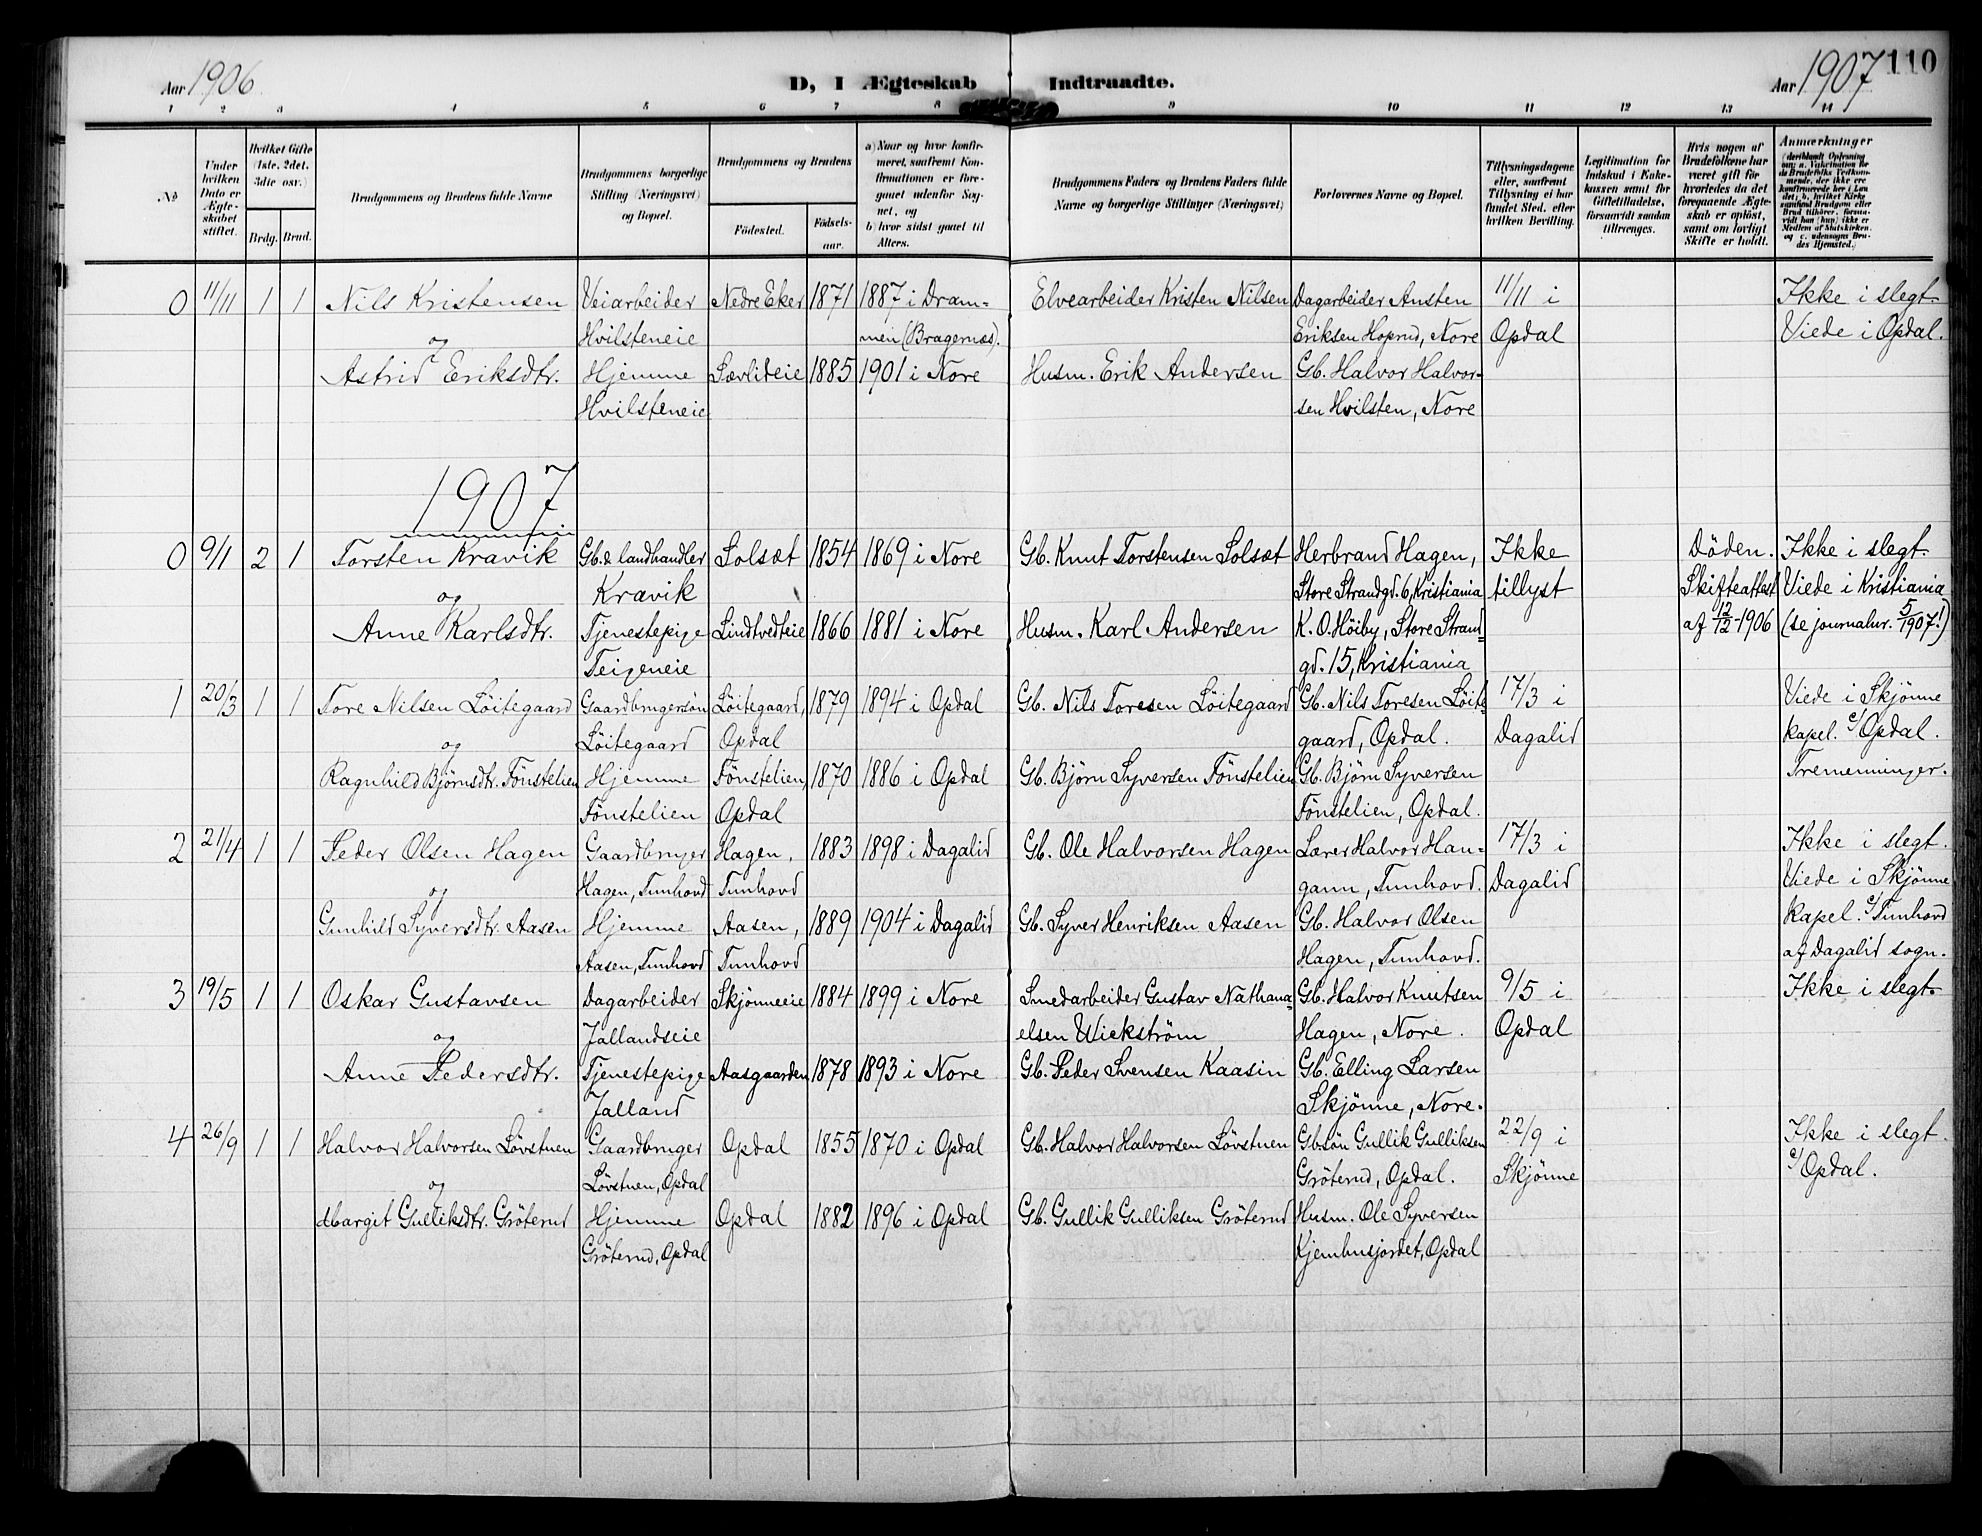 Aar 1906.
D, I Ægteskab Indtraadte.
Aar 1907
110
1 2 3 4 5 6 7 8 9 10 11 12 13 14
No
Under hvilken Dato er Ægteskabet stiftet.
Hvilket Gifte (1ste, 2det, 3die osv.)
Brdg. Brud.
Brudgommens og Brudens fulde Navne
Brudgommens borgerlige Stilling (Næringsvei) og Bopæl.
Brudgommens og Brudens
Fødested.
Fødselsaar.
a) Naar og hvor konfirmeret, saafremt Konfirmationen er foregaaet udenfor Sognet, og
b) hvor sidst gaaet til Alters.
Brudgommens Faders og Brudens Faders fulde Navne og borgerlige Stillinger (Næringsvei)
Forlovernes Navne og Bopæl.
Tillysningsdagene eller, saafremt Tillysning ei har fundet Sted, efter hvilken Bevilling.
Legitimation for Indskud i Enkekassen samt for Giftetilladelse, forsaavidt saadan tiltrænges.
Hvis nogen af Brudefolkene har været gift før hvorledes da det foregaaende Ægteskab er opløst, samt om lovligt Skifte er holdt.
Anmærkninger
(deriblandt Oplysning om: a. Vaksination for de Brudefolks Vedkommende, der ikke ere konfirmerede her i Landet; b. hvilket Kirkesamfund Brudgom eller Brud tilhører, forsaavidt han (hun) ikke er Medlem af Statskirken, og c. udensogns Brudes Hjemsted.)
0 11/11 1 1 Nils Kristensen Veiarbeider Nedre Eker 1871 1887 i Dram- Elvearbeider Kristen Nilsen Dagarbeider Ansten 11/11 i Ikke i slegt.
og Hvilsteneie men (Bragernæs). Eriksen Hoprud, Nore Opdal Viede i Opdal.
Astrid Eriksdtr. Hjemme Sævlideie 1885 1901 i Nore Husm. Erik Andersen Gb. Halvor Halvor-
Hvilsteneie sen Hvilsten, Nore
1907
0 9/1 2 1 Torsten Kravik Gb. & landhandler Solsæt 1854 1869 i Nore Gb. Knut Torstensen Solsæt Herbrand Hagen, Ikke Döden. Ikke i slegt.
og Kravik Store Strandgd. 6, Kristiania tillyst Skifteattest Viede i Kristiania
Anne Karlsdtr. Tjenestepige Lindtvedteie 1866 1881 i Nore Husm. Karl Andersen K. O. Höiby, Store Strand- af 12/12-1906 (se journalnr. 5/1907!)
Teigeneie gd. 15, Kristiania
1 20/3 1 1 Tore Nilsen Löitegaard Gaardbrugersön Löitegaard, 1879 1894 i Opdal Gb. Nils Toresen Löitegaard Gb. Nils Toresen Löite- 17/3 i Viede i Skjönne
og Löitegaard Opdal gaard, Opdal. Dagalid kapel. c/ Opdal.
Ragnhild Björnsdtr. Fönstelien Hjemme Fönstelien, 1870 1886 i Opdal Gb. Björn Syversen Fönstelien Gb. Björn Syversen Tremenninger.
Fönstelien Opdal Fönstelien, Opdal.
2 21/4 1 1 Peder Olsen Hagen Gaardbruger Hagen, 1883 1898 i Dagalid Gb. Ole Halvorsen Hagen Lærer Halvor Han- 17/3 i Ikke i slegt.
og Hagen, Tunhovd Tunhovd gann, Tunhovd. Dagalid Viede i Skjönne
Gunhild Syversdtr. Aasen Hjemme Aasen, 1889 1904 i Dagalid Gb. Syver Henriksen Aasen Gb. Halvor Olsen kapel. c/ Tunhovd
Aasen, Tunhovd Tunhovd Hagen, Tunhovd. af Dagalid sogn.
3 19/5 1 1 Oskar Gustavsen Dagarbeider Skjönneeie 1884 1899 i Nore Smedarbeider Gustav Nathana- Gb. Halvor Knutsen 9/5 i Ikke i slegt.
og Jallandseie elsen Wickström Hagen, Nore. Opdal
Anne Pedersdtr. Tjenestepige Aasgaarden 1878 1893 i Nore Gb. Peder Svensen Kaasin Gb. Elling Larsen
Jalland Skjönne, Nore.
4 26/9 1 1 Halvor Halvorsen Lövstuen Gaardbruger Opdal 1855 1870 i Opdal Gb. Halvor Halvorsen Lövstuen Gbsön Gullik Gulliksen 22/9 i Ikke i slegt.
og Lövstuen, Opdal Gröterud, Opdal. Skjönne c/ Opdal.
Margit Gulliksdtr. Gröterud Hjemme Opdal 1882 1896 i Opdal Gb. Gullik Gulliksen Gröterud Husm. Ole Syversen
Gröterud, Opdal Kjemhusjordet, Opdal